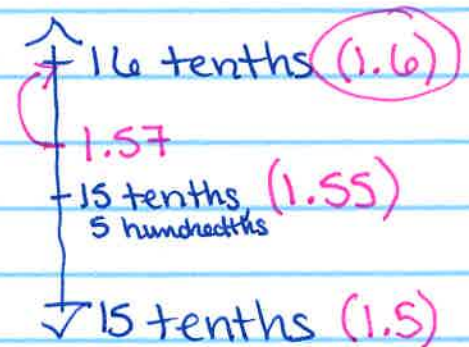 16 tenths (1.6)
1.57
15 tenths, (1.55)
5 hundredths
15 tenths (1.5)